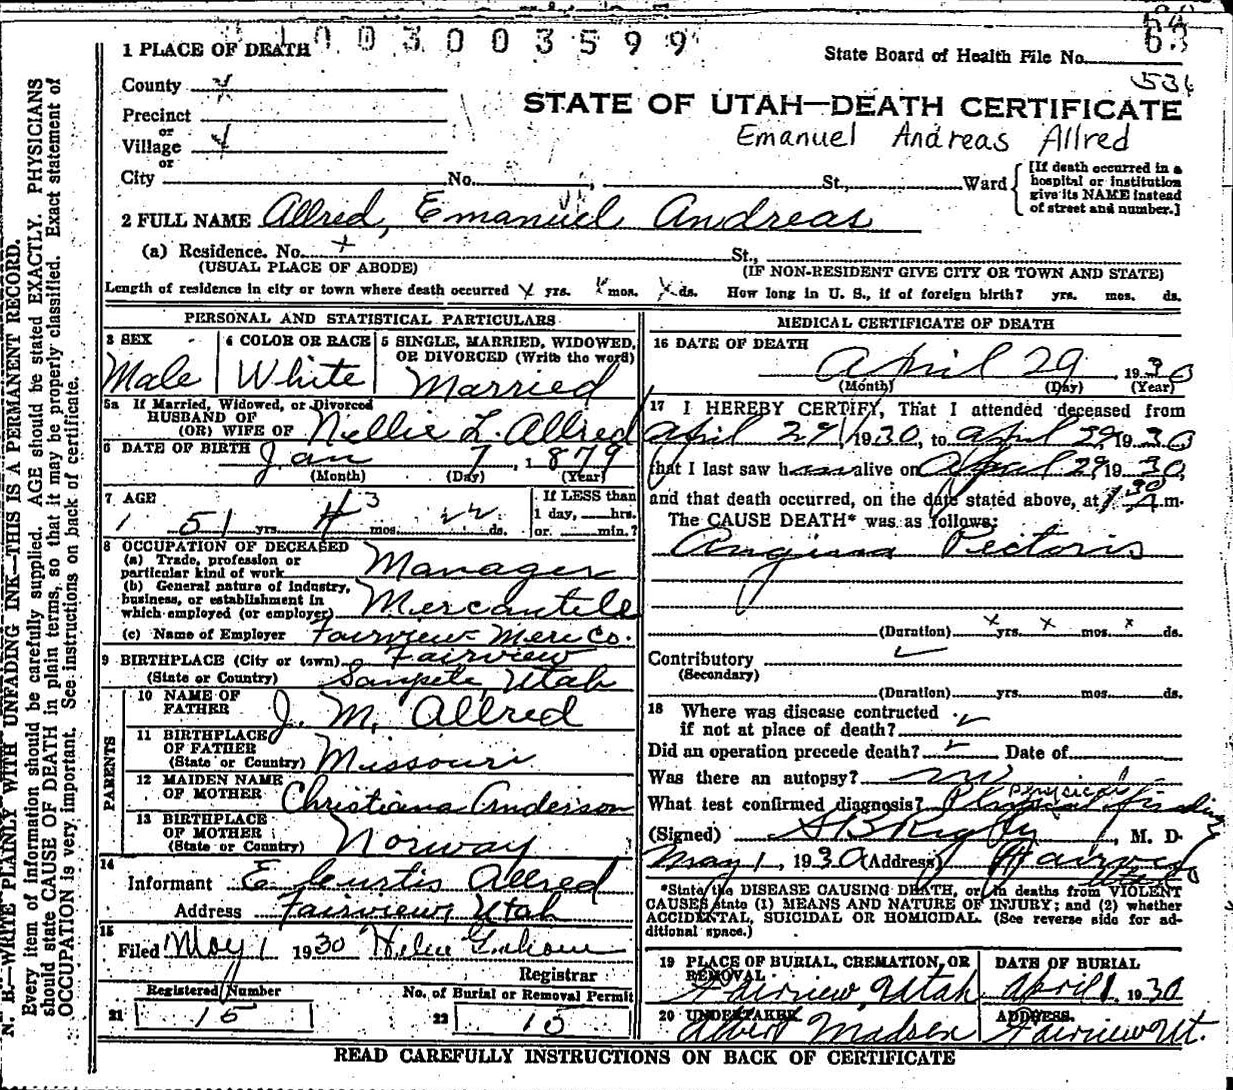 1003003599
64
63
1 PLACE OF DEATH
State Board of Health File No.
536
County
STATE OF UTAH—DEATH CERTIFICATE
Precinct
or
Village
Emanuel Andreas Allred
or
City No. , St., Ward
[If death occurred in a hospital or institution give its NAME instead of street and number.]
2 FULL NAME Allred, Emanuel Andreas
(a) Residence. No. St.,
(USUAL PLACE OF ABODE) (IF NON-RESIDENT GIVE CITY OR TOWN AND STATE)
Length of residence in city or town where death occurred x yrs. x mos. x ds. How long in U. S., if of foreign birth? yrs. mos. ds.
PERSONAL AND STATISTICAL PARTICULARS
3 SEX Male
4 COLOR OR RACE White
5 SINGLE, MARRIED, WIDOWED, OR DIVORCED (Write the word) Married
5a If Married, Widowed, or Divorced
HUSBAND OF
(OR) WIFE OF Nellie L. Allred
6 DATE OF BIRTH Jan 7, 1879
(Month) (Day) (Year)
7 AGE 51 yrs. 3 mos. 22 ds.
If LESS than 1 day, hrs. or min.?
8 OCCUPATION OF DECEASED
(a) Trade, profession or particular kind of work Manager
(b) General nature of industry, business, or establishment in which employed (or employer) Mercantile
(c) Name of Employer Fairview Merc Co.
9 BIRTHPLACE (City or town) Fairview
(State or Country) Sanpete, Utah
PARENTS
10 NAME OF FATHER J. M. Allred
11 BIRTHPLACE OF FATHER (State or Country) Missouri
12 MAIDEN NAME OF MOTHER Christiana Anderson
13 BIRTHPLACE OF MOTHER (State or Country) Norway
14 Informant E. Curtis Allred
Address Fairview, Utah
15 Filed May 1 1930 Helen Graham
Registrar
Registered Number
21 15
No. of Burial or Removal Permit
22 15
MEDICAL CERTIFICATE OF DEATH
16 DATE OF DEATH
April 29, 1930
(Month) (Day) (Year)
17 I HEREBY CERTIFY, That I attended deceased from
April 29, 1930, to April 29, 1930
that I last saw h alive on April 29 1930,
and that death occurred, on the date stated above, at 1 30 A.m.
The CAUSE DEATH* was as follows:
Angina Pectoris
(Duration) x yrs. x mos. x ds.
Contributory
(Secondary)
(Duration) yrs. mos. ds.
18 Where was disease contracted
if not at place of death?
Did an operation precede death? Date of
Was there an autopsy? no
What test confirmed diagnosis? Physical findings
Physical
(Signed) S B Rigby, M. D.
May 1, 1930 (Address) Fairview
Utah
*State the DISEASE CAUSING DEATH, or, in deaths from VIOLENT
CAUSES state (1) MEANS AND NATURE OF INJURY; and (2) whether
ACCIDENTAL, SUICIDAL OR HOMICIDAL. (See reverse side for ad-
ditional space.)
19 PLACE OF BURIAL, CREMATION, OR REMOVAL
Fairview, Utah
DATE OF BURIAL
April 1 1930
20 UNDERTAKER
Albert Madsen
ADDRESS
Fairview Ut.
READ CAREFULLY INSTRUCTIONS ON BACK OF CERTIFICATE
N. B.—WRITE PLAINLY WITH UNFADING INK—THIS IS A PERMANENT RECORD.
Every item of information should be carefully supplied. AGE should be stated EXACTLY. PHYSICIANS
should state CAUSE OF DEATH in plain terms, so that it may be properly classified. Exact statement of
OCCUPATION is very important. See instructions on back of certificate.